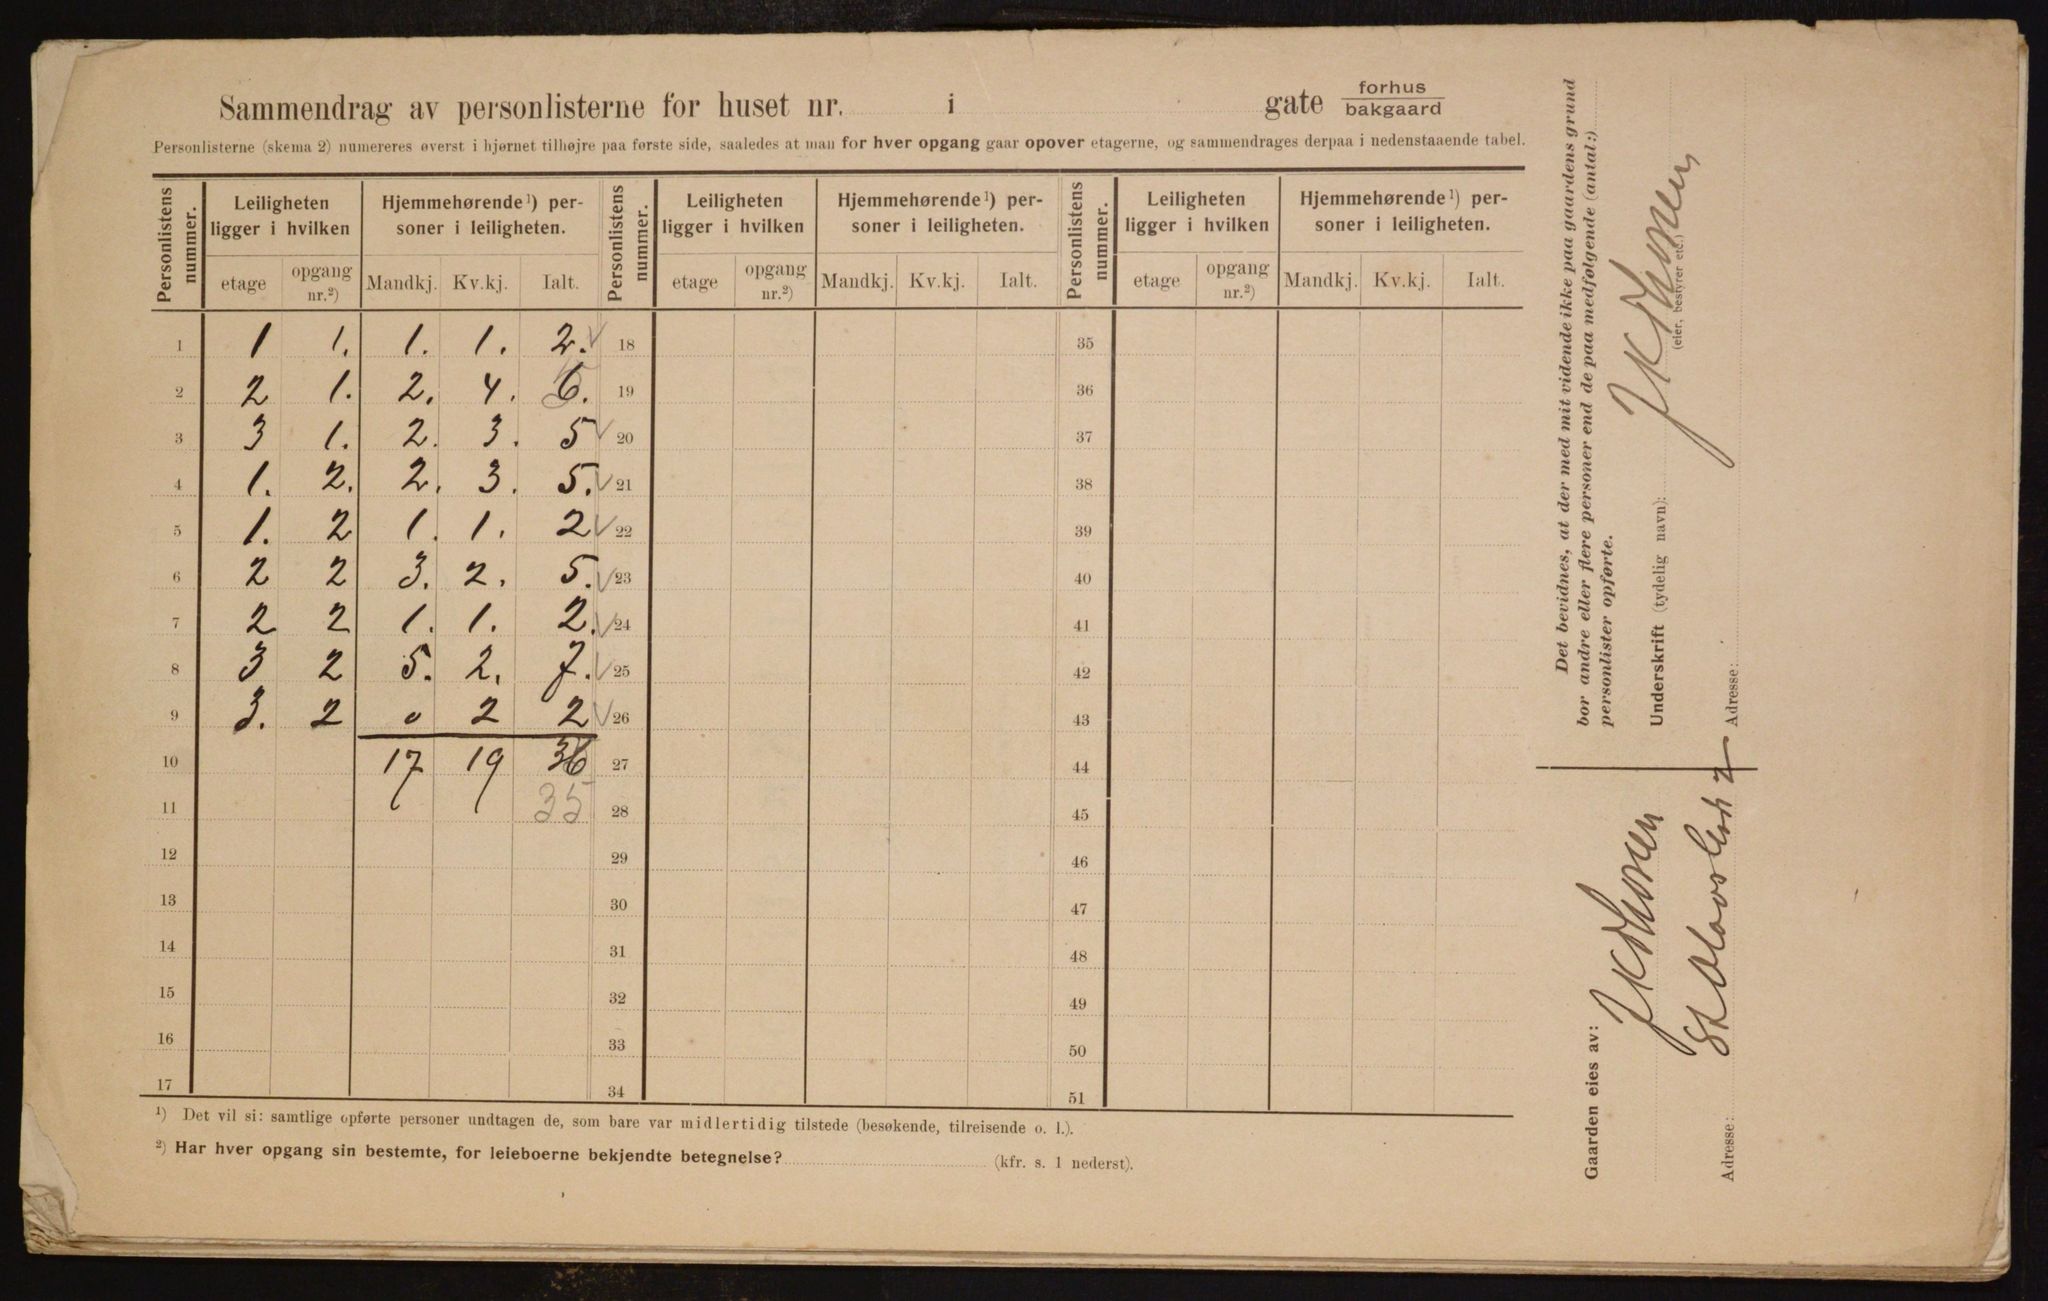 Sammendrag av personlisterne for huset nr. i gate forhus bakgaard
Personlisterne (skema 2) numereres øverst i hjørnet tilhøjre paa første side, saaledes at man for hver opgang gaar opover etagerne, og sammendrages derpaa i nedenstaaende tabel.
Personlistens nummer. Leiligheten ligger i hvilken Hjemmehørende¹) personer i leiligheten. Personlistens nummer. Leiligheten ligger i hvilken Hjemmehørende¹) personer i leiligheten. Personlistens nummer. Leiligheten ligger i hvilken Hjemmehørende¹) personer i leiligheten.
etage opgang nr.²) Mandkj. Kv.kj. Ialt. etage opgang nr.²) Mandkj. Kv.kj. Ialt. etage opgang nr.²) Mandkj. Kv.kj. Ialt.
1 1 1. 1. 1. 2. 18 35
2 2 1. 2. 4. 6. 19 36
3 3 1. 2. 3. 5 20 37
4 1. 2. 2. 3. 5. 21 38
5 1. 2 1. 1. 2 22 39
6 2 2 3. 2. 5. 23 40
7 2 2 1. 1. 2. 24 41
8 3 2 5. 2. 7. 25 42
9 3. 2 0 2 2 26 43
10 17 19 36 27 44
11 35 28 45
12 29 46
13 30 47
14 31 48
15 32 49
16 33 50
17 34 51
¹) Det vil si: samtlige opførte personer undtagen de, som bare var midlertidig tilstede (besøkende, tilreisende o. l.).
²) Har hver opgang sin bestemte, for leieboerne bekjendte betegnelse? (kfr. s. 1 nederst).
Det bevidnes, at der med mit vidende ikke paa gaardens grund
bor andre eller flere personer end de paa medfølgende (antal:)
personlister opførte.
Underskrift (tydelig navn):
(eier, bestyrer etc.)
Adresse:
Gaarden eies av:
Adresse: 2